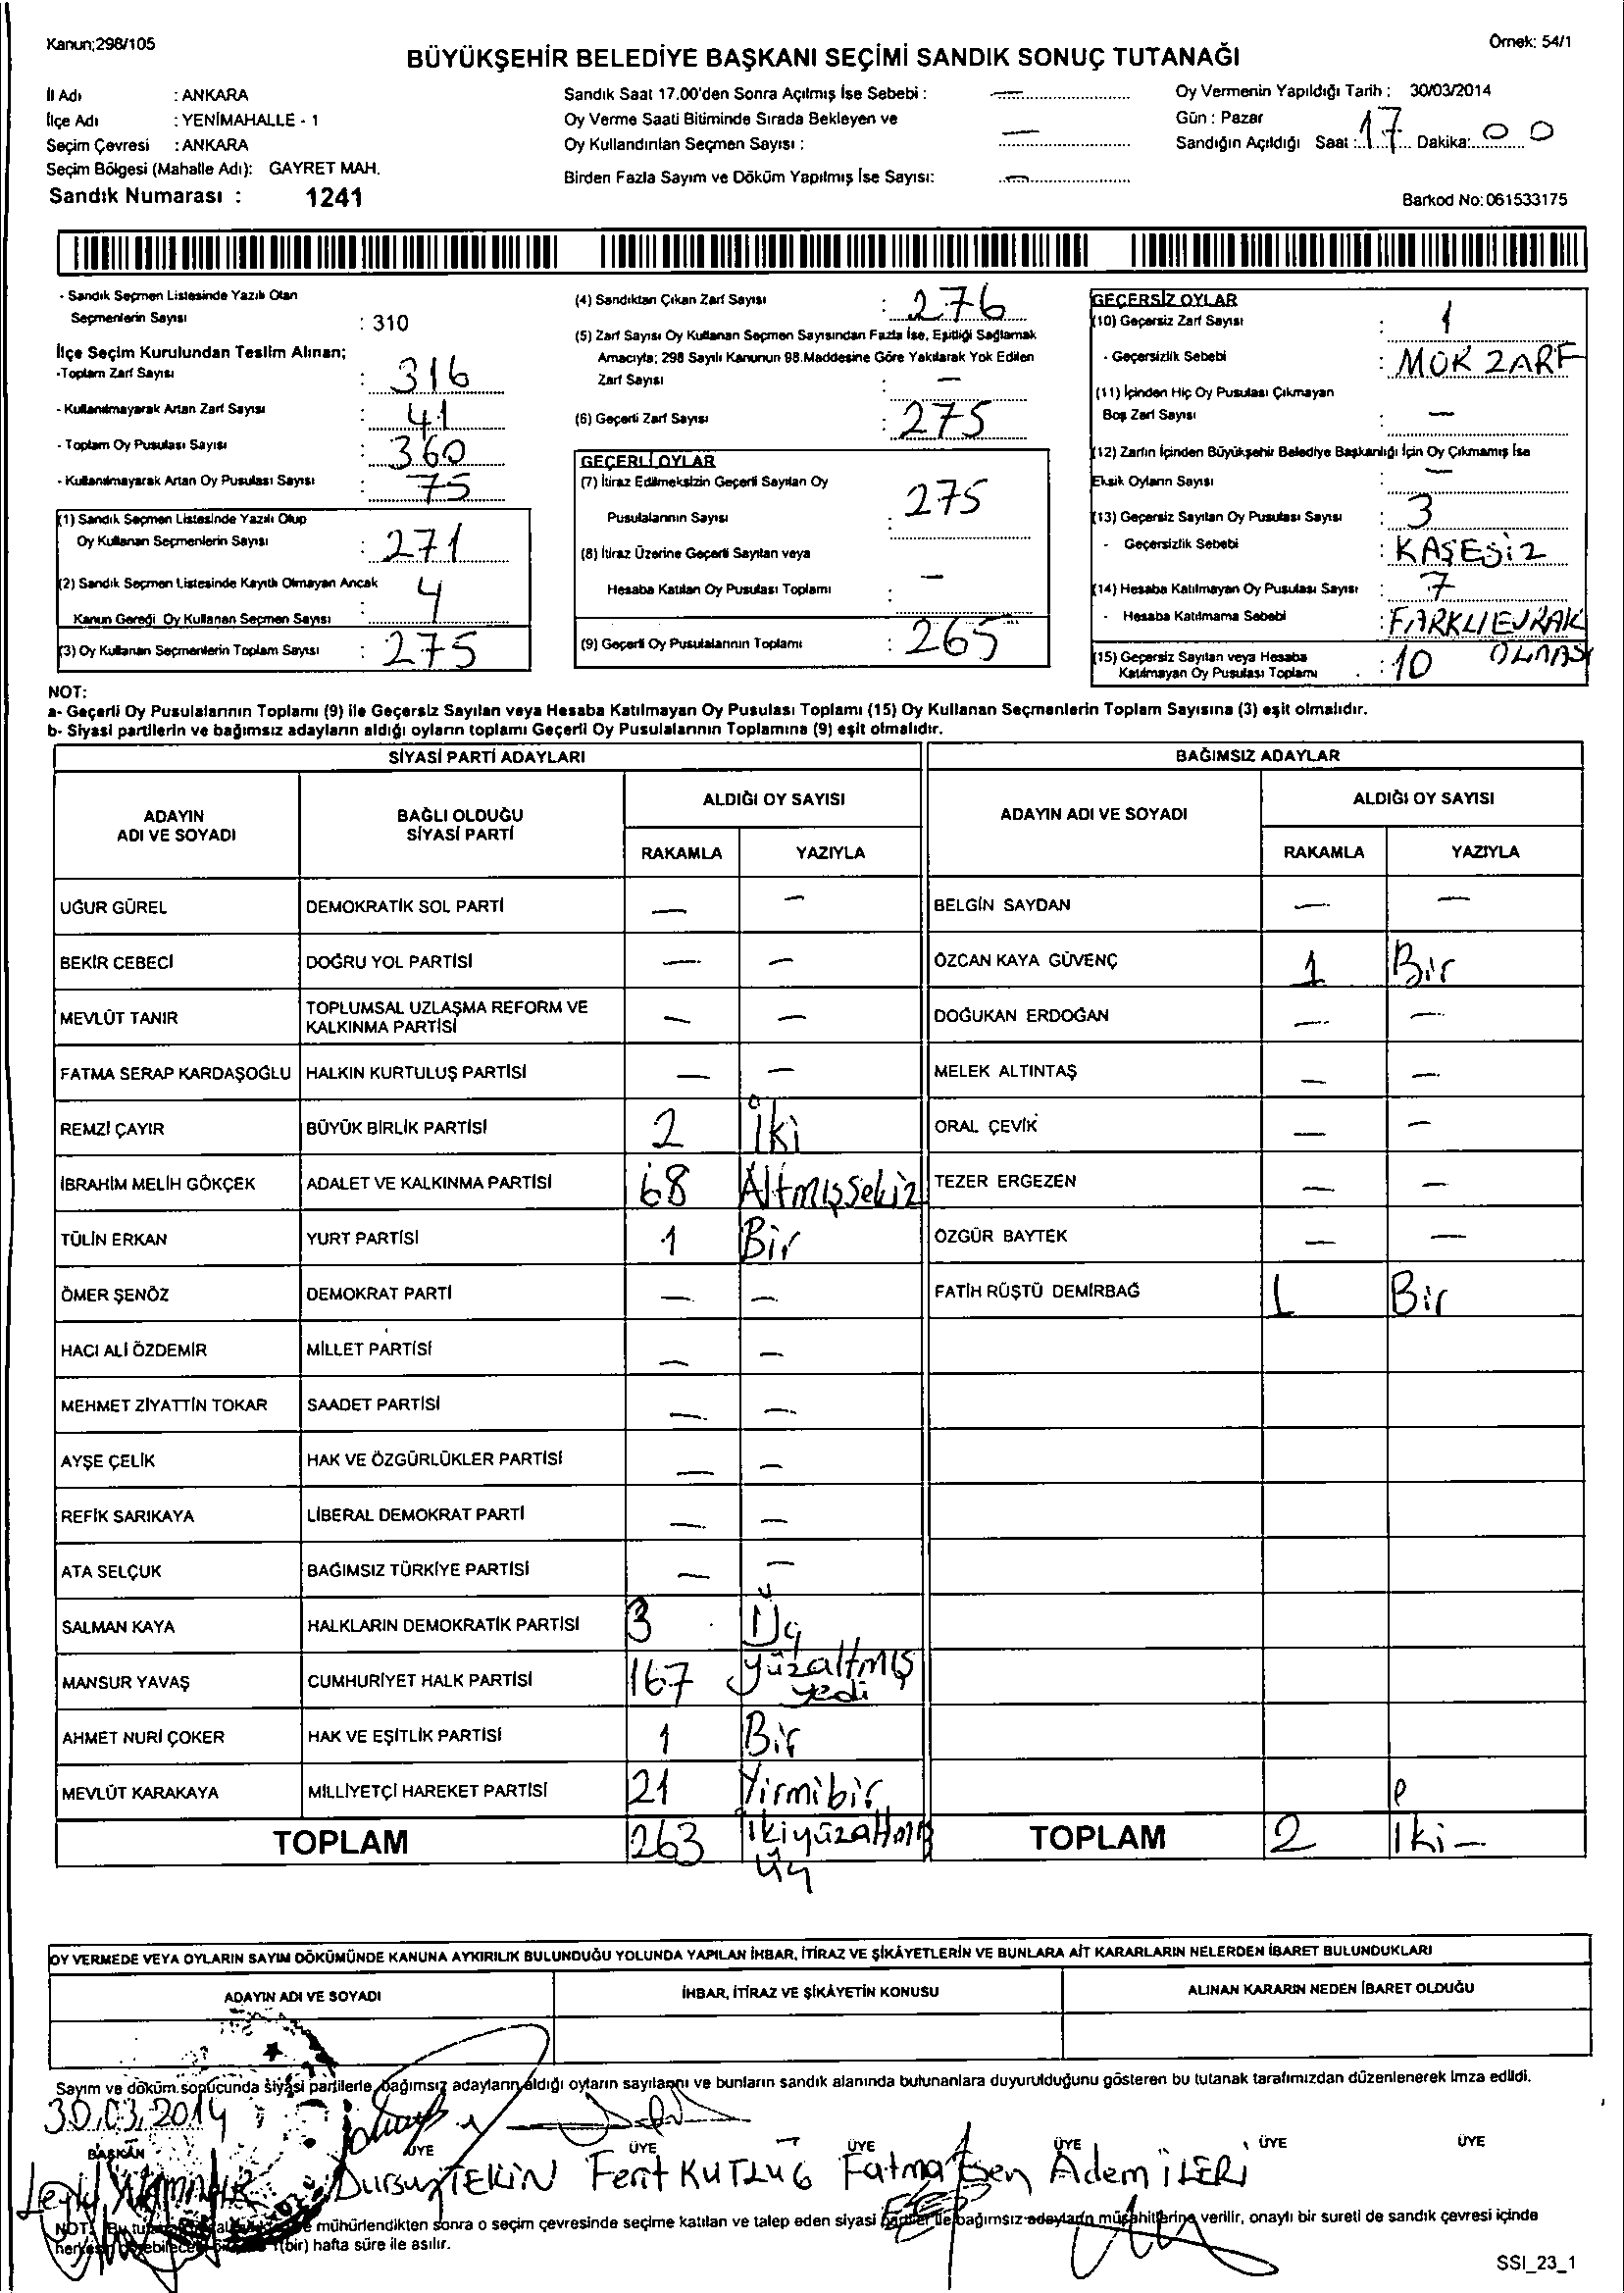 Kanun;298/105
Örnek: 54/1
BÜYÜKŞEHİR BELEDİYE BAŞKANI SEÇİMİ SANDIK SONUÇ TUTANAĞI
İl Adı : ANKARA
İlçe Adı : YENİMAHALLE - 1
Seçim Çevresi : ANKARA
Seçim Bölgesi (Mahalle Adı): GAYRET MAH.
Sandık Numarası : 1241
Sandık Saat 17.00'den Sonra Açılmış İse Sebebi : —
Oy Verme Saati Bitiminde Sırada Bekleyen ve
Oy Kullandırılan Seçmen Sayısı : —
Birden Fazla Sayım ve Döküm Yapılmış İse Sayısı: —
Oy Vermenin Yapıldığı Tarih : 30/03/2014
Gün : Pazar
Sandığın Açıldığı Saat : 17 Dakika: 00
Barkod No: 061533175
- Sandık Seçmen Listesinde Yazılı Olan
Seçmenlerin Sayısı : 310
İlçe Seçim Kurulundan Teslim Alınan;
-Toplam Zarf Sayısı : 316
- Kullanılmayarak Artan Zarf Sayısı : 41
- Toplam Oy Pusulası Sayısı : 360
- Kullanılmayarak Artan Oy Pusulası Sayısı : 75
(1) Sandık Seçmen Listesinde Yazılı Olup
Oy Kullanan Seçmenlerin Sayısı : 271
(2) Sandık Seçmen Listesinde Kayıtlı Olmayan Ancak
Kanun Gereği Oy Kullanan Seçmen Sayısı : 4
(3) Oy Kullanan Seçmenlerin Toplam Sayısı : 275
(4) Sandıktan Çıkan Zarf Sayısı : 276
(5) Zarf Sayısı Oy Kullanan Seçmen Sayısından Fazla İse, Eşitliği Sağlamak
Amacıyla; 298 Sayılı Kanunun 98.Maddesine Göre Yakılarak Yok Edilen
Zarf Sayısı : —
(6) Geçerli Zarf Sayısı : 275
GEÇERLİ OYLAR
(7) İtiraz Edilmeksizin Geçerli Sayılan Oy
Pusulalarının Sayısı : 275
(8) İtiraz Üzerine Geçerli Sayılan veya
Hesaba Katılan Oy Pusulası Toplamı : —
(9) Geçerli Oy Pusulalarının Toplamı : 265
GEÇERSİZ OYLAR
(10) Geçersiz Zarf Sayısı : 1
- Geçersizlik Sebebi : MÜK ZARF
(11) İçinden Hiç Oy Pusulası Çıkmayan
Boş Zarf Sayısı : —
(12) Zarfın İçinden Büyükşehir Belediye Başkanlığı İçin Oy Çıkmamış İse
Eksik Oyların Sayısı —
(13) Geçersiz Sayılan Oy Pusulası Sayısı : 3
- Geçersizlik Sebebi : KAŞESİZ
(14) Hesaba Katılmayan Oy Pusulası Sayısı : 7
- Hesaba Katılmama Sebebi : FARKLI EVRAK OLMASI
(15) Geçersiz Sayılan veya Hesaba
Katılmayan Oy Pusulası Toplamı : 10
NOT:
a- Geçerli Oy Pusulalarının Toplamı (9) ile Geçersiz Sayılan veya Hesaba Katılmayan Oy Pusulası Toplamı (15) Oy Kullanan Seçmenlerin Toplam Sayısına (3) eşit olmalıdır.
b- Siyasi partilerin ve bağımsız adayların aldığı oyların toplamı Geçerli Oy Pusulalarının Toplamına (9) eşit olmalıdır.
SİYASİ PARTİ ADAYLARI
ADAYIN ADI VE SOYADI
BAĞLI OLDUĞU SİYASİ PARTİ
ALDIĞI OY SAYISI
RAKAMLA YAZIYLA
UĞUR GÜREL DEMOKRATİK SOL PARTİ — —
BEKİR CEBECİ DOĞRU YOL PARTİSİ — —
MEVLÜT TANIR TOPLUMSAL UZLAŞMA REFORM VE KALKINMA PARTİSİ — —
FATMA SERAP KARDAŞOĞLU HALKIN KURTULUŞ PARTİSİ — —
REMZİ ÇAYIR BÜYÜK BİRLİK PARTİSİ 2 İki
İBRAHİM MELİH GÖKÇEK ADALET VE KALKINMA PARTİSİ 68 Altmışsekiz
TÜLİN ERKAN YURT PARTİSİ 1 Bir
ÖMER ŞENÖZ DEMOKRAT PARTİ — —
HACI ALİ ÖZDEMİR MİLLET PARTİSİ — —
MEHMET ZİYATTİN TOKAR SAADET PARTİSİ — —
AYŞE ÇELİK HAK VE ÖZGÜRLÜKLER PARTİSİ — —
REFİK SARIKAYA LİBERAL DEMOKRAT PARTİ — —
ATA SELÇUK BAĞIMSIZ TÜRKİYE PARTİSİ — —
SALMAN KAYA HALKLARIN DEMOKRATİK PARTİSİ 3 Üç
MANSUR YAVAŞ CUMHURİYET HALK PARTİSİ 167 yüzaltmış yedi
AHMET NURİ ÇOKER HAK VE EŞİTLİK PARTİSİ 1 Bir
MEVLÜT KARAKAYA MİLLİYETÇİ HAREKET PARTİSİ 21 Yirmibir
TOPLAM 263 ikiyüzaltmış üç
BAĞIMSIZ ADAYLAR
ADAYIN ADI VE SOYADI
ALDIĞI OY SAYISI
RAKAMLA YAZIYLA
BELGİN SAYDAN — —
ÖZCAN KAYA GÜVENÇ 1 Bir
DOĞUKAN ERDOĞAN — —
MELEK ALTINTAŞ — —
ORAL ÇEVİK — —
TEZER ERGEZEN — —
ÖZGÜR BAYTEK — —
FATİH RÜŞTÜ DEMİRBAĞ 1 Bir
TOPLAM 2 İki —
OY VERMEDE VEYA OYLARIN SAYIM DÖKÜMÜNDE KANUNA AYKIRILIK BULUNDUĞU YOLUNDA YAPILAN İHBAR, İTİRAZ VE ŞİKÂYETLERİN VE BUNLARA AİT KARARLARIN NELERDEN İBARET BULUNDUKLARI
ADAYIN ADI VE SOYADI İHBAR, İTİRAZ VE ŞİKÂYETİN KONUSU ALINAN KARARIN NEDEN İBARET OLDUĞU
Sayım ve döküm sonucunda siyasi partilerle bağımsız adayların aldığı oyların sayılarını ve bunların sandık alanında bulunanlara duyurulduğunu gösteren bu tutanak tarafımızdan düzenlenerek imza edildi.
30.03.2014
BAŞKAN ÜYE ÜYE ÜYE ÜYE ÜYE ÜYE
Dursun TEKİN Ferit KUTLUG Fatma Esen Adem İLERİ
mühürlendikten sonra o seçim çevresinde seçime katılan ve talep eden siyasi partiler ile bağımsız adayların müşahitlerine verilir, onaylı bir sureti de sandık çevresi içinde
(bir) hafta süre ile asılır.
SSI_23_1